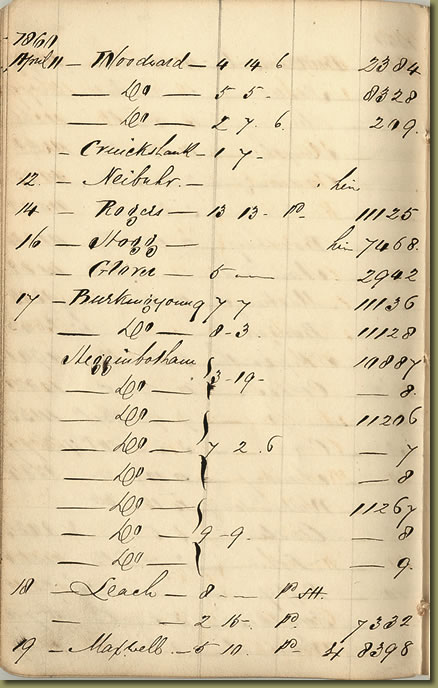 1861
April 11 — Woodward — 4 14 6 2384
— Do — 5 5 - 8328
— Do — 2 7. 6. 209.
- Cruickshank - 1 7 -
12. — Neibuhr. — hin
14 — Rogers — 13 13 - Pd. 11125
16 — Hogg — hin 7468.
— Glover — 5 — 2942
17 — Burkinyoung 9 7 7 11136
— Do — 8 - 3. 11128
Hegginbotham 10887
— Do — 3 - 19 - — 8.
— Do 11206
— Do — 7 2 . 6 — 7
— Do — — 8
— Do — 11267
— Do — 9 - 9. — 8
— Do — — 9.
18 — Leach — 8 — Pd
— — 2 15 - Pd. 7332
19 — Maxwell — 5 10. Pd - 4 8398